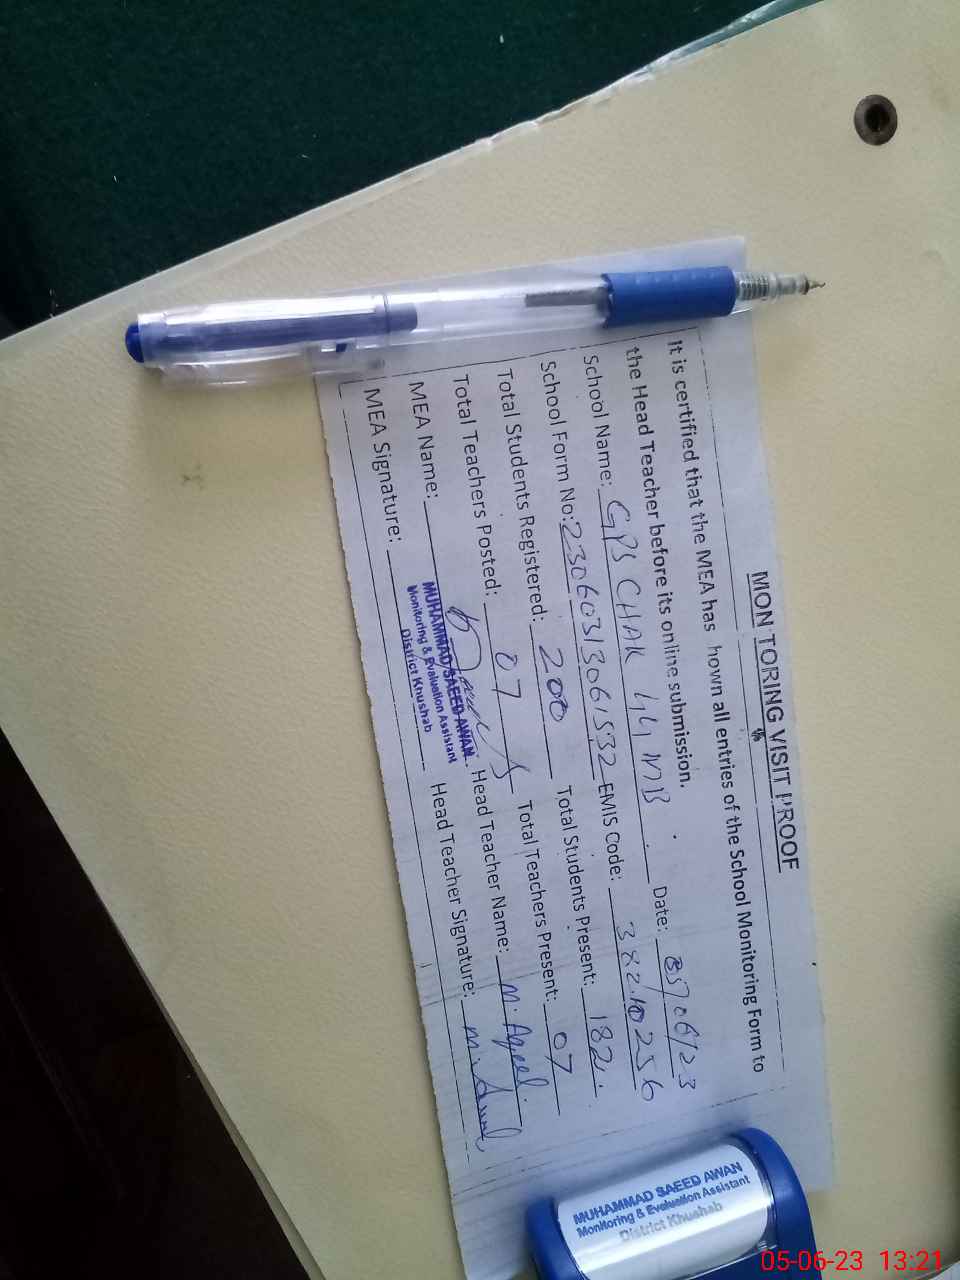 MON TORING VISIT PROOF
It is certified that the MEA has hown all entries of the School Monitoring Form to
the Head Teacher before its online submission.
School Name: GPS CHAK 44 MB Date: 05/06/23
School Form No: 23060313061532 EMIS Code: 38210256
Total Students Registered: 200 Total Students Present: 182
Total Teachers Posted: 07 Total Teachers Present: 07
MEA Name: Head Teacher Name: M. Aqeel
MEA Signature: Head Teacher Signature:
MUHAMMAD SAEED AWAN
Monitoring & Evaluation Assistant
District Khushab
MUHAMMAD SAEED AWAN
Monitoring & Evaluation Assistant
District Khushab
05-06-23 13:21